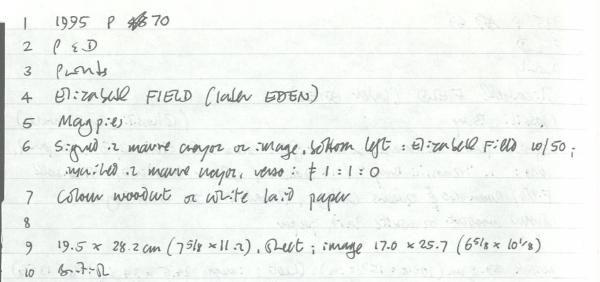 1 1995 P 70
2 P & D
3 Prints
4 Elizabeth FIELD (later EDEN)
5 Magpies
6 Signed in mauve crayon on image, bottom left : Elizabeth Field 10/50 ;
inscribed in mauve crayon, verso : 1 : 1 : 0
7 Colour woodcut on white laid paper
8
9 19.5 x 28.2 cm (7 5/8 x 11 in), sheet ; image 17.0 x 25.7 (6 5/8 x 10 1/8)
10 British